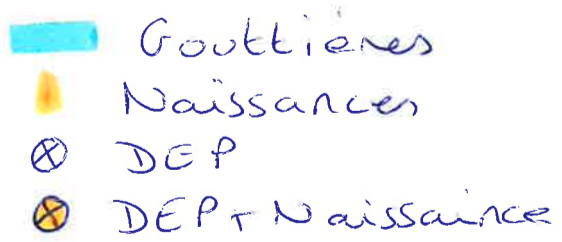 Gouttières
Naïssances
DEP
DEP + Naissaince